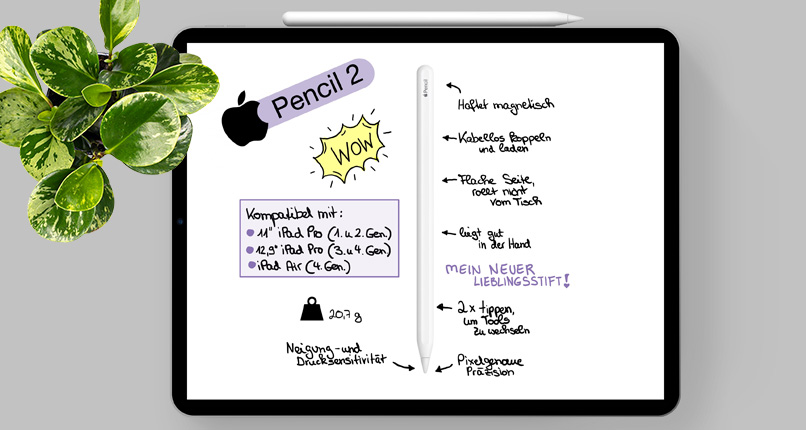 Pencil 2
WOW
Kompatibel mit:
11" iPad Pro (1. u 2. Gen.)
12,9" iPad Pro (3. u 4. Gen)
iPad Air (4. Gen.)
20,7 g
Neigung- und
Drucksensitivität
Pencil
Haftet magnetisch
Kabellos koppeln
und laden
Flache Seite,
rollt nicht
vom Tisch
liegt gut
in der Hand
MEIN NEUER
LIEBLINGSSTIFT!
2x tippen,
um Tools
zu wechseln
Pixelgenaue
Präzision